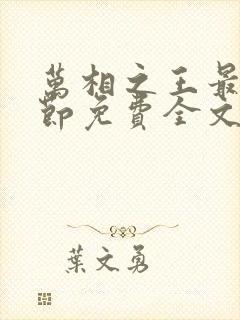 萬相之王最
節免費全文
葉文勇